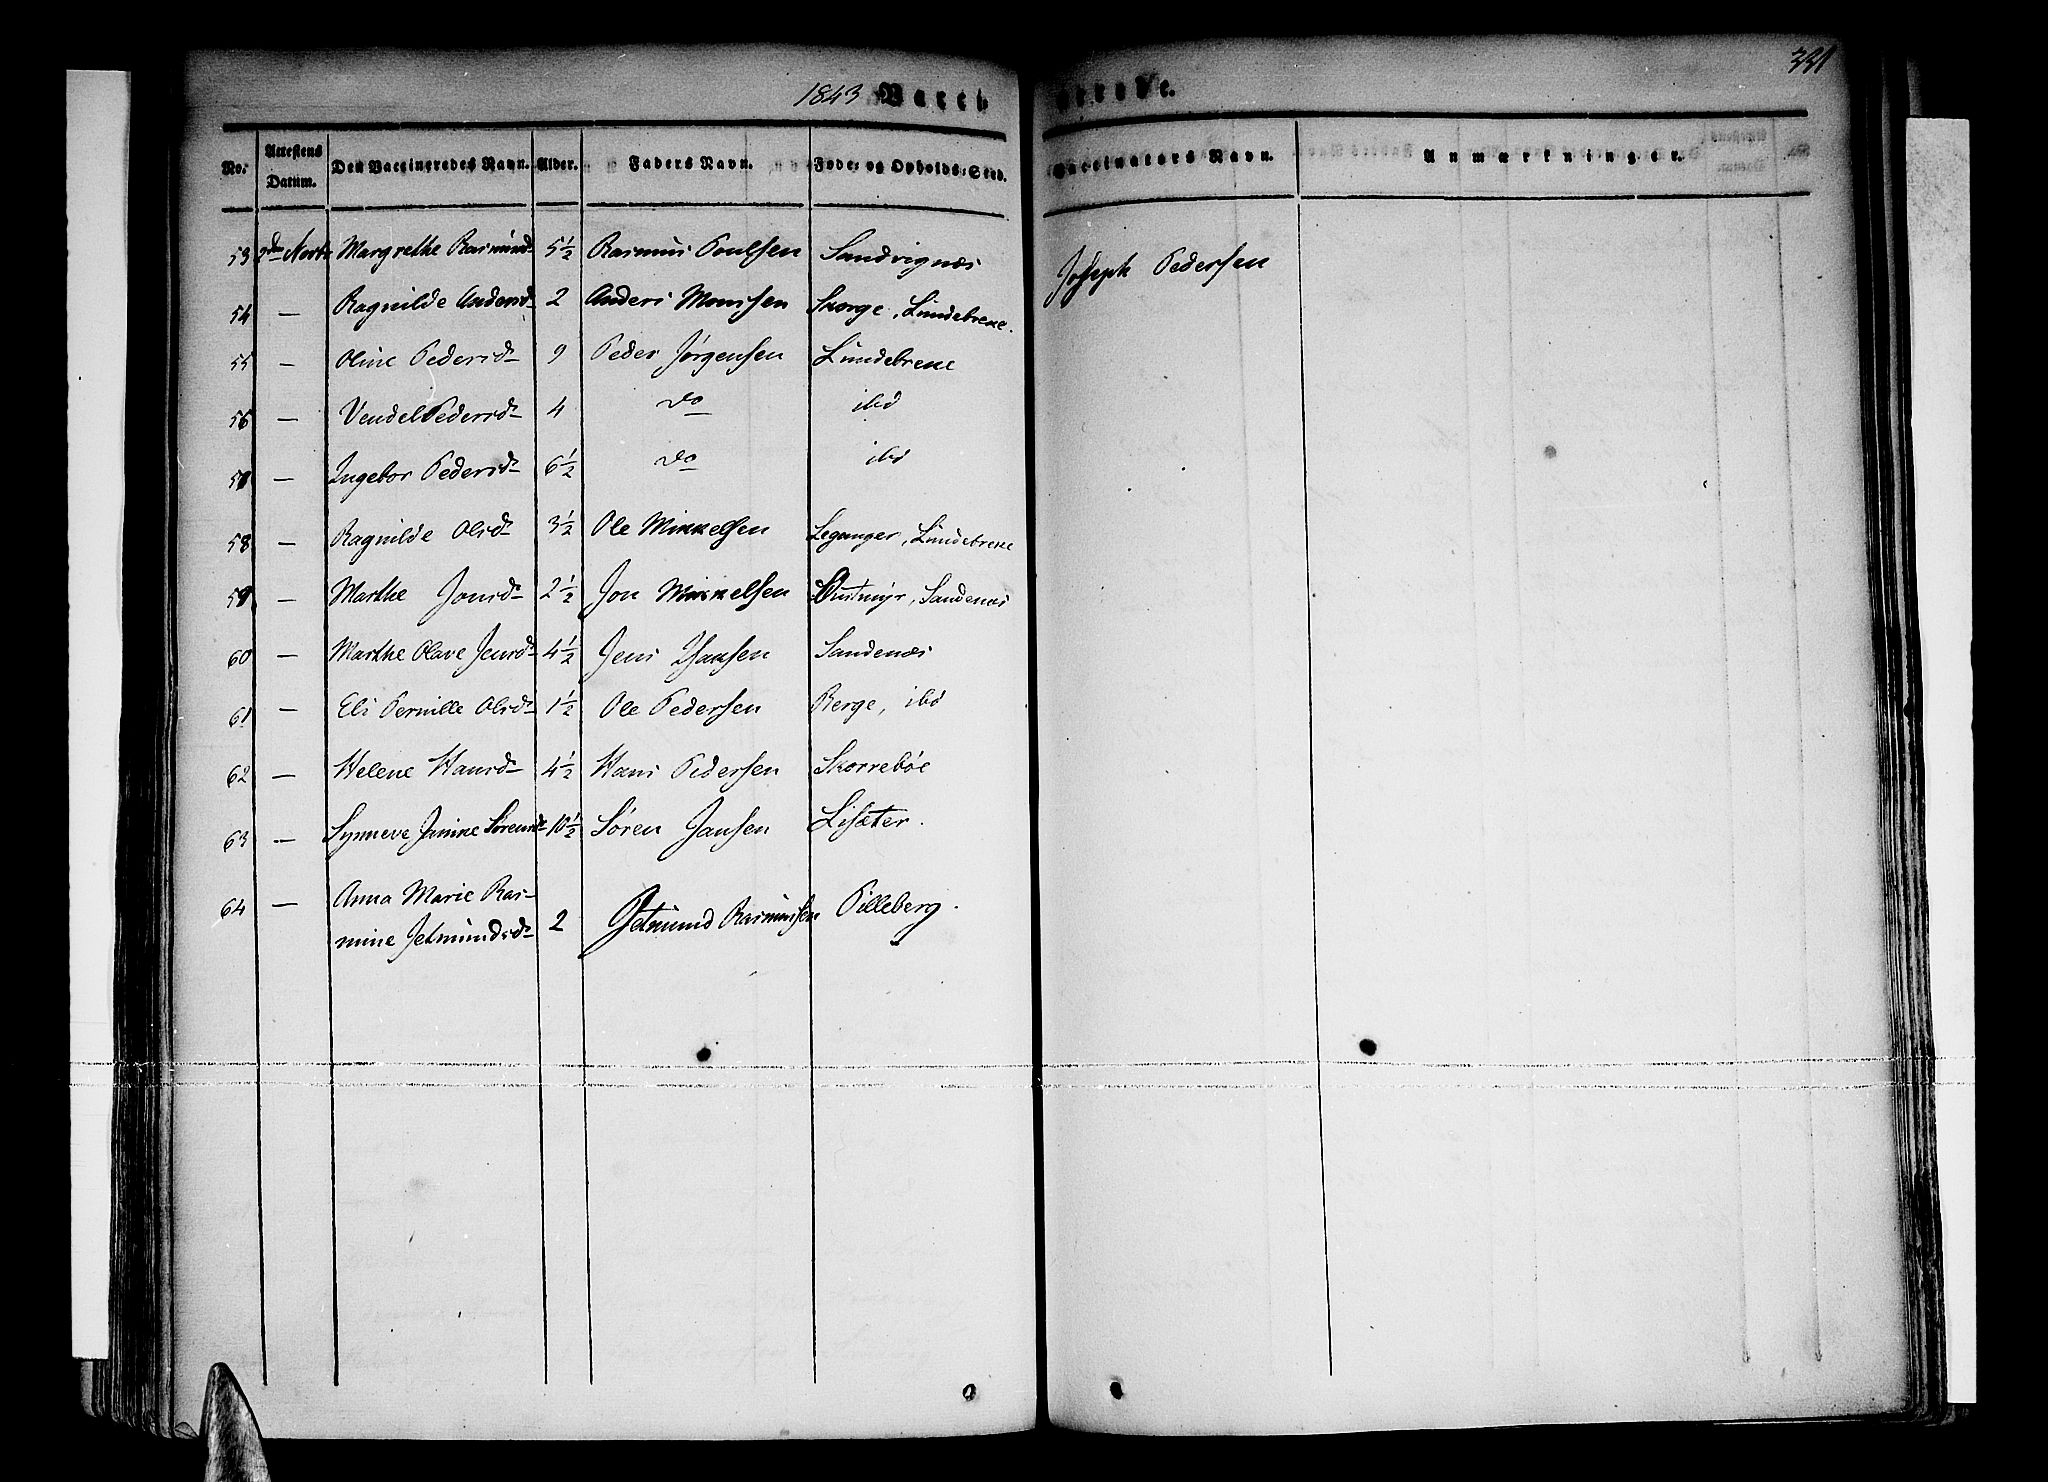 331
1843 Vacci nerede.
No. Attestens Datum. Den Vaccineredes Navn. Alder. Faders Navn. Føde- og Opholds-Sted. Vaccinateurs Navn. Anmærkninger.
53 Margrethe Rasmusd 5½ Rasmus Poulsen Sandvignæs Joseph Pedersen
54 — Ragnilde Andersd 2 Anders Monssen Skorge, Lundebrene.
55 — Oline Pedersd 9 Peder Jørgensen Lundebrene
56 — Vendel Pedersd 4 do ibd
57 — Ingebor Pedersd 6½ do ibd
58 — Ragnilde Olsd 3½ Ole Mikkelsen Leganger, Lundebrene
59 — Marthe Jonsd 2½ Jon Mikkelsen Sandenæs
60 — Marthe Olave Jensd 4½ Jens Hansen Sandenæs
61 — Eli Pernille Olsd 1½ Ole Pedersen Berge, ibd
62 — Helene Hansd 4½ Hans Pedersen Skorrebøe
63 — Synneve Sørensd 10½ Søren Jansen Lisæter.
64 — Anna Marie Ras-
mine Jetmundsd 2 Jetmund Rasmussen Pilleberg.